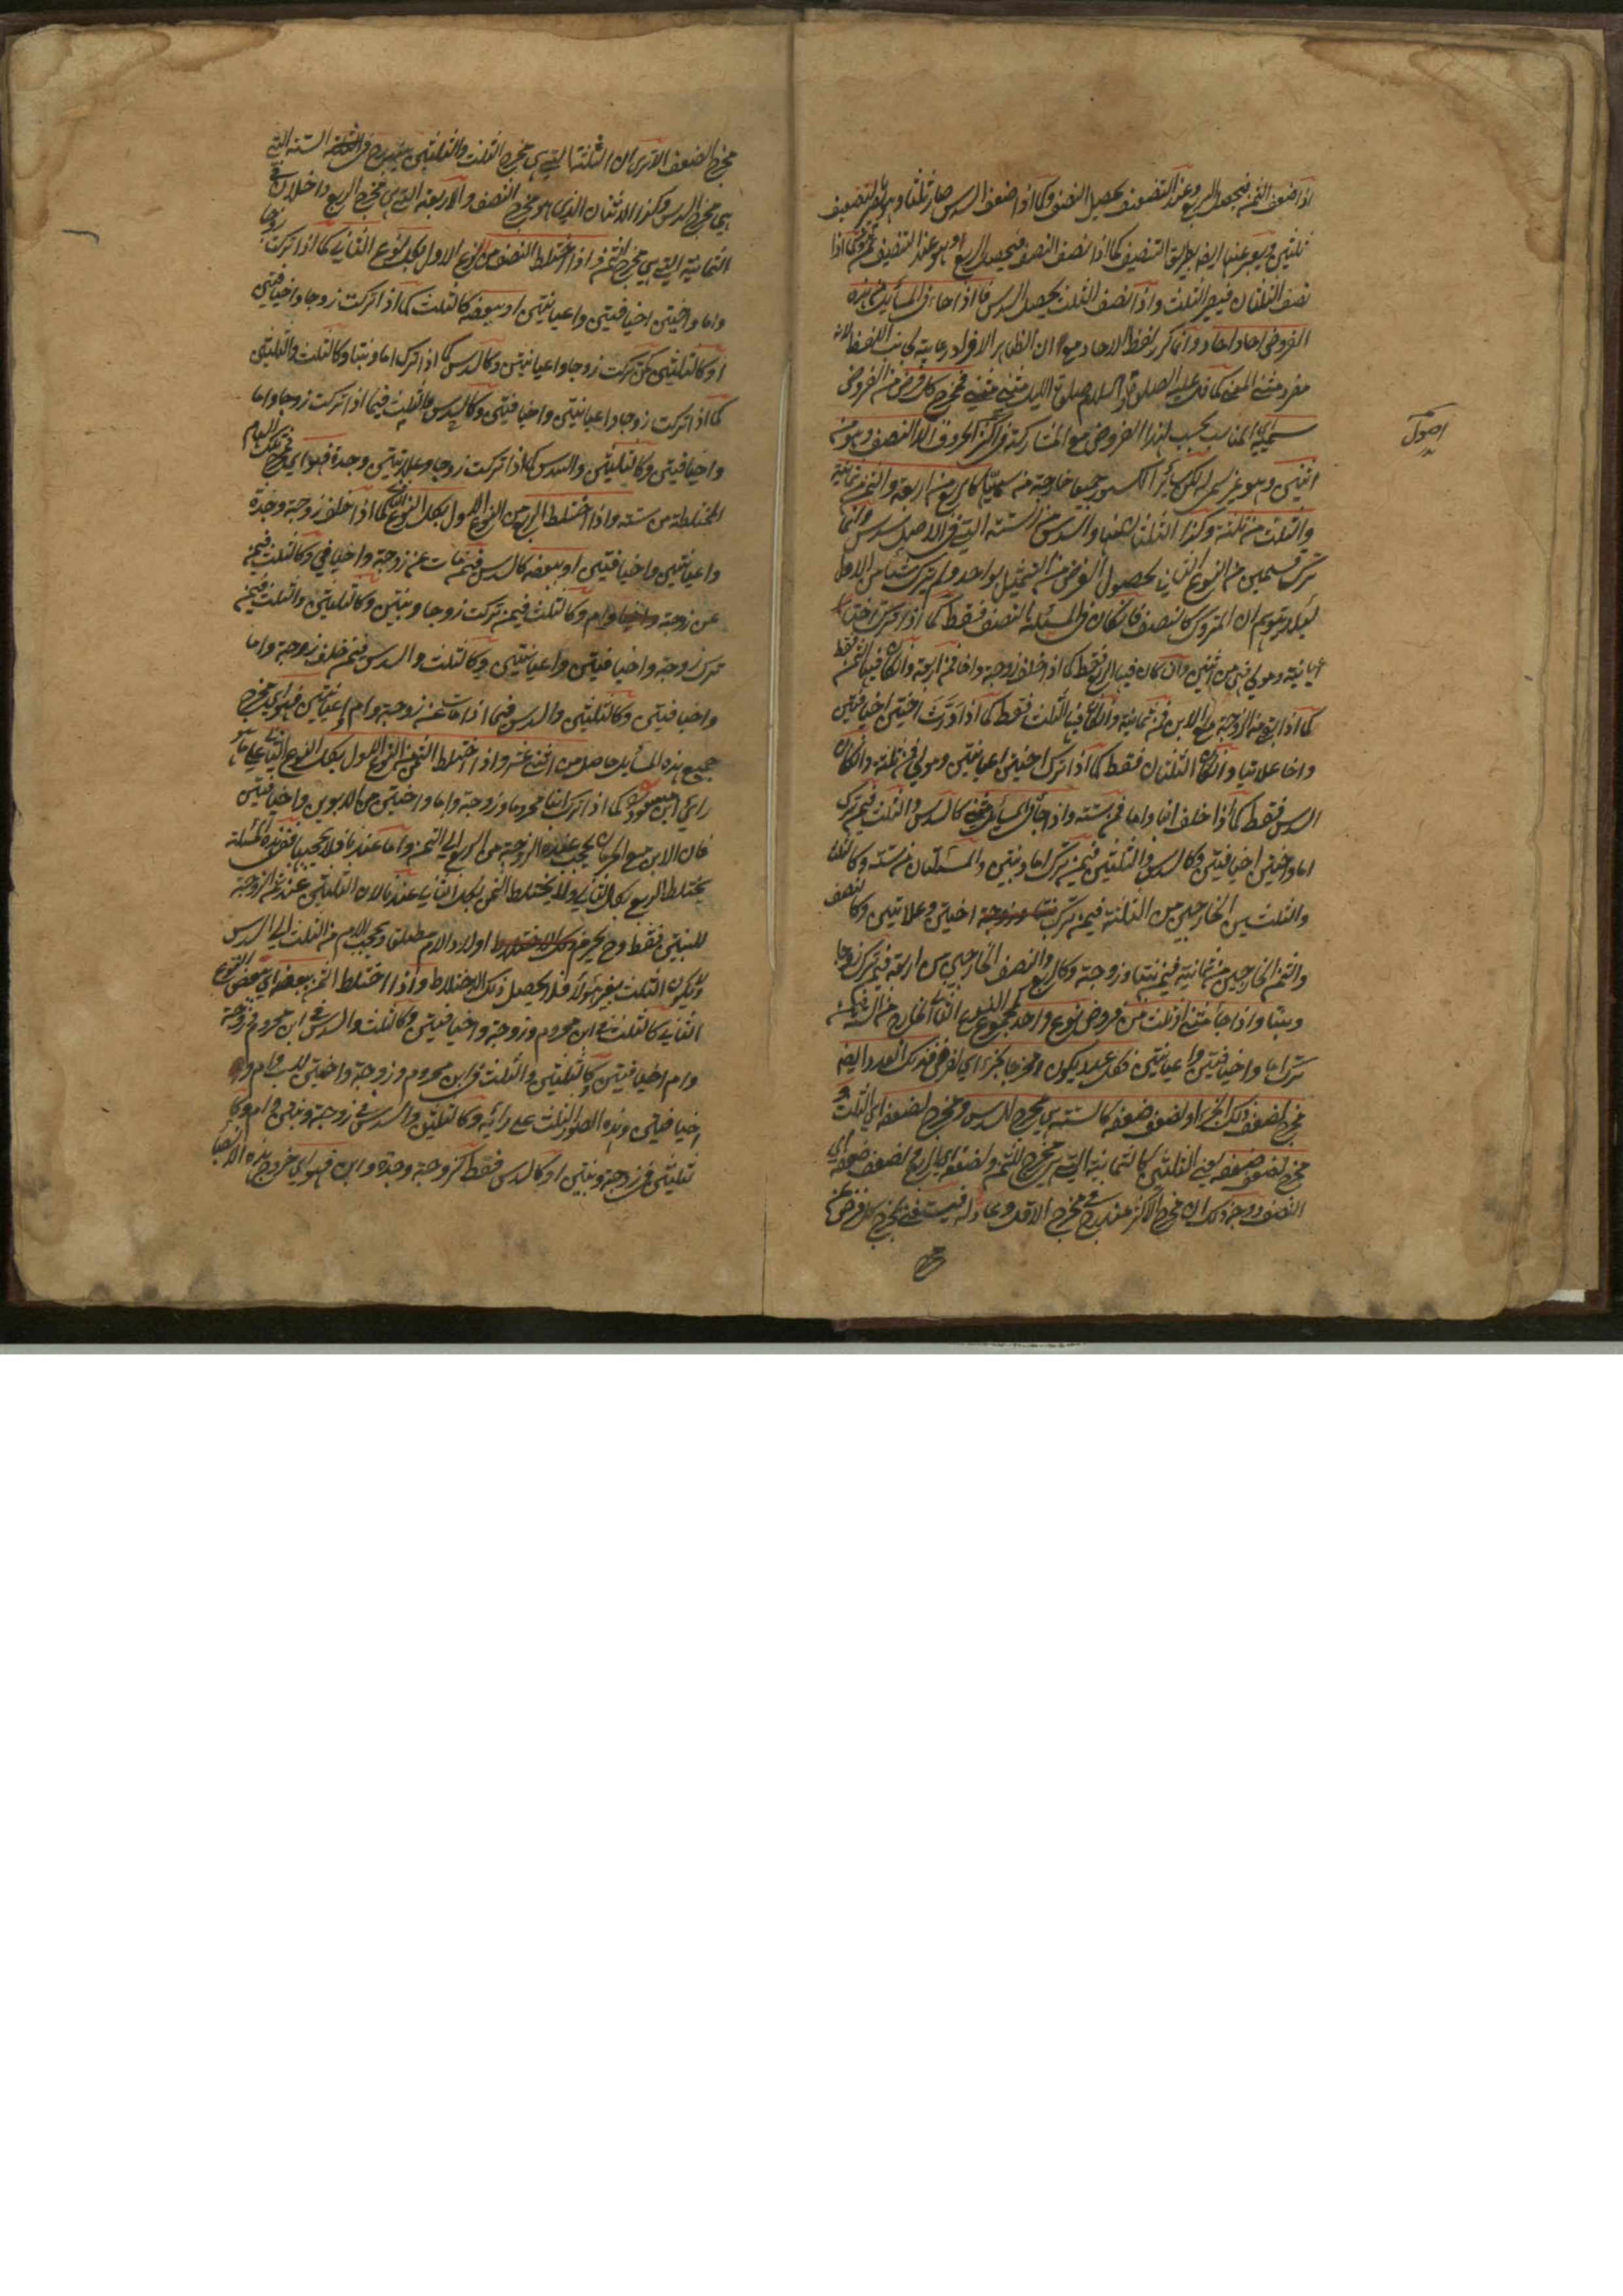 اذا ضعف الثمن فيحصل الربع وعند التضعيف يحصل النصف وكما اذا ضعف السدس صار ثلثا وهو بالتضعيف
ثلثين ويعبر عنها ايضا بطريق التنصيف كما اذا نصف النصف فيحصل الربع وهو عند التنصيف ثمن وكما اذا
نصف الثلثان فيصير الثلث واذا نصف الثلث يحصل السدس فاذا جاء في المسائل من هذه
الفروض احاد احاد وانما كرر لفظ الاحاد مع ان الظاهر الافراد رعاية لجانب اللفظ لانه
مفرد مثنى المعنى كما قال عليه الصلوة والسلام صلوة الليل مثنى مثنى فمخرج كل فرض من الفروض
سميه اي المناسب بحسب لهذا الفروض مع المشاركة في اكثر الحروف الا النصف وهو من
اثنين وهو غير سميه لكن سائر الكسور جميعا خارجة من سميها كالربع من اربعة والثمن من ثمانية
والثلث من ثلثة وكذا الثلثان منها والسدس من الستة التي في الاصل سدس وانما
ترك قسمين من النوع الثاني لحصول الغرض من التمثيل بواحد ولم يترك من الاول
لئلا يتوهم ان المتروك كالنصف فان كان في المسئلة النصف فقط كما اذا ترك اختا
اعيانية ومولى فهي من اثنين وان كان فيها الربع فقط كما اذا خلف زوجة واخا فمن اربعة وان كان فيها الثمن فقط
كما اذا اجتمع الزوجة مع الابن فمن ثمانية وان كان فيها الثلث فقط كما اذا ورث اختين اخيافيتين
واخا علاتيا وان كان الثلثان فقط كما اذا ترك اختين اعيانيتين ومولى فمن ثلثة وان كان
السدس فقط كما اذا خلف ابنا واما فمن ستة واذا جاء في المسائل مثنى كالسدس والثلث فيمن ترك
اما واختين اخيافيتين وكالسدس والثلثين فيمن ترك اما وبنتين والمسئلتان من ستة وكالثلث
والثلثين الخارجين من الثلثة فيمن ترك اختين وعلاتيين وكالنصف
والثمن الخارجين من ثمانية فيمن بنتا وزوجة وكالربع والنصف الخارجين من اربعة فيمن ترك زوجا
وبنتا واذا جاء مثنى او ثلث من فروض نوع واحد
ترك اما واخيافيتين واعيانيتين فكل عدد يكون مخرجا لجزء اي لفرض فذلك العدد ايضا
مخرج لضعف ذلك الجزء او لضعف ضعفه كالستة هي مخرج السدس ومخرج لضعفه اي الثلث و
مخرج لضعف ضعفه يعني الثلثين كالثمانية التي هي مخرج للثمن ولضعفه اي الربع ولضعف ضعفه اي
النصف ووجه ذلك ان مخرج الاكثر مندرج في مخرج الاقل
اصول
مخرج الضعف الا ترى ان الثلثة التي هي مخرج الثلث والثلثين مندرج في الستة التي
هي مخرج السدس وكذا الاثنان الذي هو مخرج النصف والاربعة التي هي مخرج الربع داخلان في
الثمانية التي هي مخرج الثمن فاذا اختلط النصف من النوع الاول بكل النوع الثاني كما اذا تركت زوجا
واما واختين اخيافيتين واعيانيتين او ببعضه كالثلث كما اذا تركت زوجا واخيافيتين
او كالثلثين كمن تركت زوجا واعيانيتين وكالسدس كما اذا ترك اما وبنتا وكالثلث والثلثين
كما اذا تركت زوجا واعيانيتين واخيافيتين وكالسدس والثلث فيما اذا تركت زوجا واما
واخيافيتين وكالثلثين والسدس كما اذا تركت زوجا وعلاتيتين وجدة فهو اي مخرج تلك السهام
المختلطة من ستة واذا اختلط الربع من النوع الاول بكل النوع الثاني كما اذا خلف زوجة وجدة
واعيانيتين واخيافيتين او ببعضه كالسدس فيمن مات عن زوجة واخيافي وكالثلث فيمن
عن زوجة وام وكالثلث فيمن تركت زوجا وبنتين وكالثلثين والثلث فيمن
ترك زوجة واخيافيتين واعيانيتين وكالثلث والسدس فيمن خلف زوجة واما
واخيافيتين وكالثلثين والسدس فيما اذا مات عن زوجة وام واعيانيتين فهو اي مخرج
جميع هذه المسائل حاصل من اثنى عشر واذا اختلط الثمن من النوع الاول بكل النوع الثاني على
راي ابن مسعود كما اذا ترك ابنا محروما وزوجة واما واختين من الابوين واخيافيتين
فان الابن مع الحرمان يحجب عنده الزوجة من الربع الى الثمن واما عندنا فلا يحجبها ففي هذه المسئلة
يختلط الربع بكل الثاني ولا يختلط الثمن بكل الثاني عندنا لان الثلثين عند ثمن الزوجة
للبنتين فقط وح يحرم اولاد الام مطلقا ويحجب الام من الثلث الى السدس
ولا يكون الثلث بغير هؤلاء فلا يحصل ذلك الاختلاط واذا اختلط الثمن ببعضه اي ببعض النوع
الثاني كالثلث في ابن محروم وزوجة واخيافيتين وكالثلث والسدس في ابن محروم وزوجة
وام اخيافيتين وكالثلثين والثلث في ابن محروم وزوجة واختين لاب وام و
اخيافيتين وهذه الصور الثلث على رائه وكالثلثين والسدس في زوجة وبنتين وام وكا
لثلثين في زوجة وبنتين او كالسدس فقط كزوجة وجدة وابن فهو اي خروج هذه الانصبا